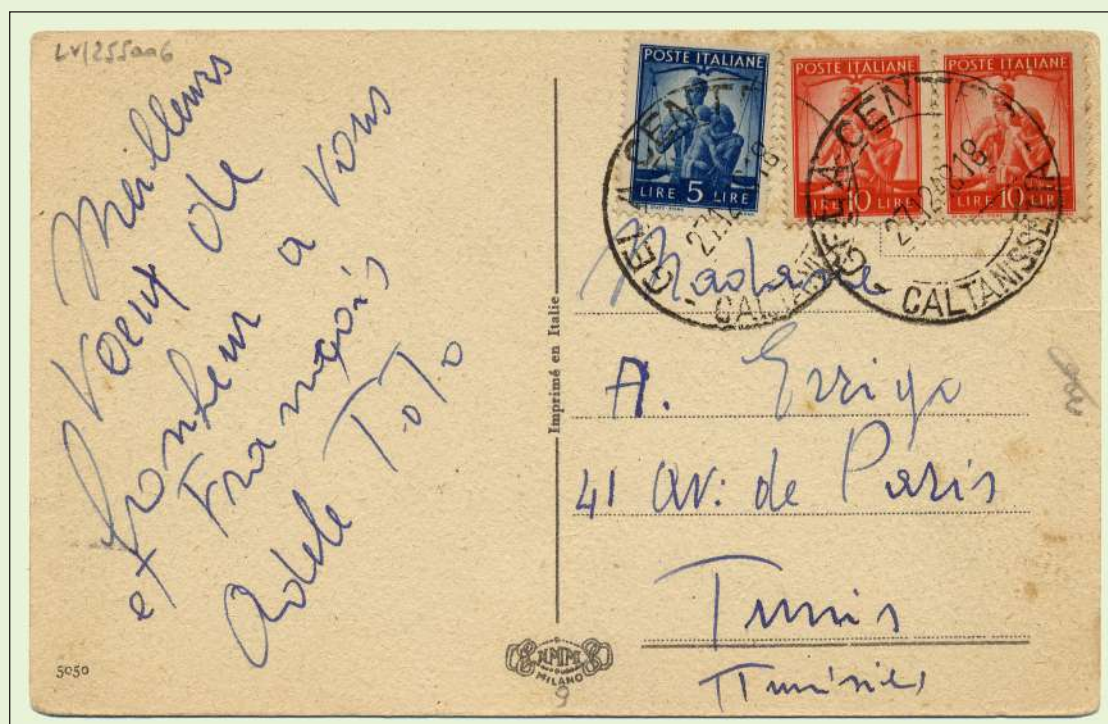 LV/255aa6
Meilleurs
Voeux de
bonheur a vous
et François
Adele Toto
5050
Imprimé en Italie
NMM
MILANO
9
POSTE ITALIANE
LIRE 5 LIRE
POSTE ITALIANE
LIRE 10 LIRE
POSTE ITALIANE
LIRE 10 LIRE
GELA CENTRO
27.12.48.18
CALTANISSETTA
GELA CENTRO
27.12.48.18
CALTANISSETTA
Madame
A. Erriga
41 av: de Paris
Tunis
Tunisie